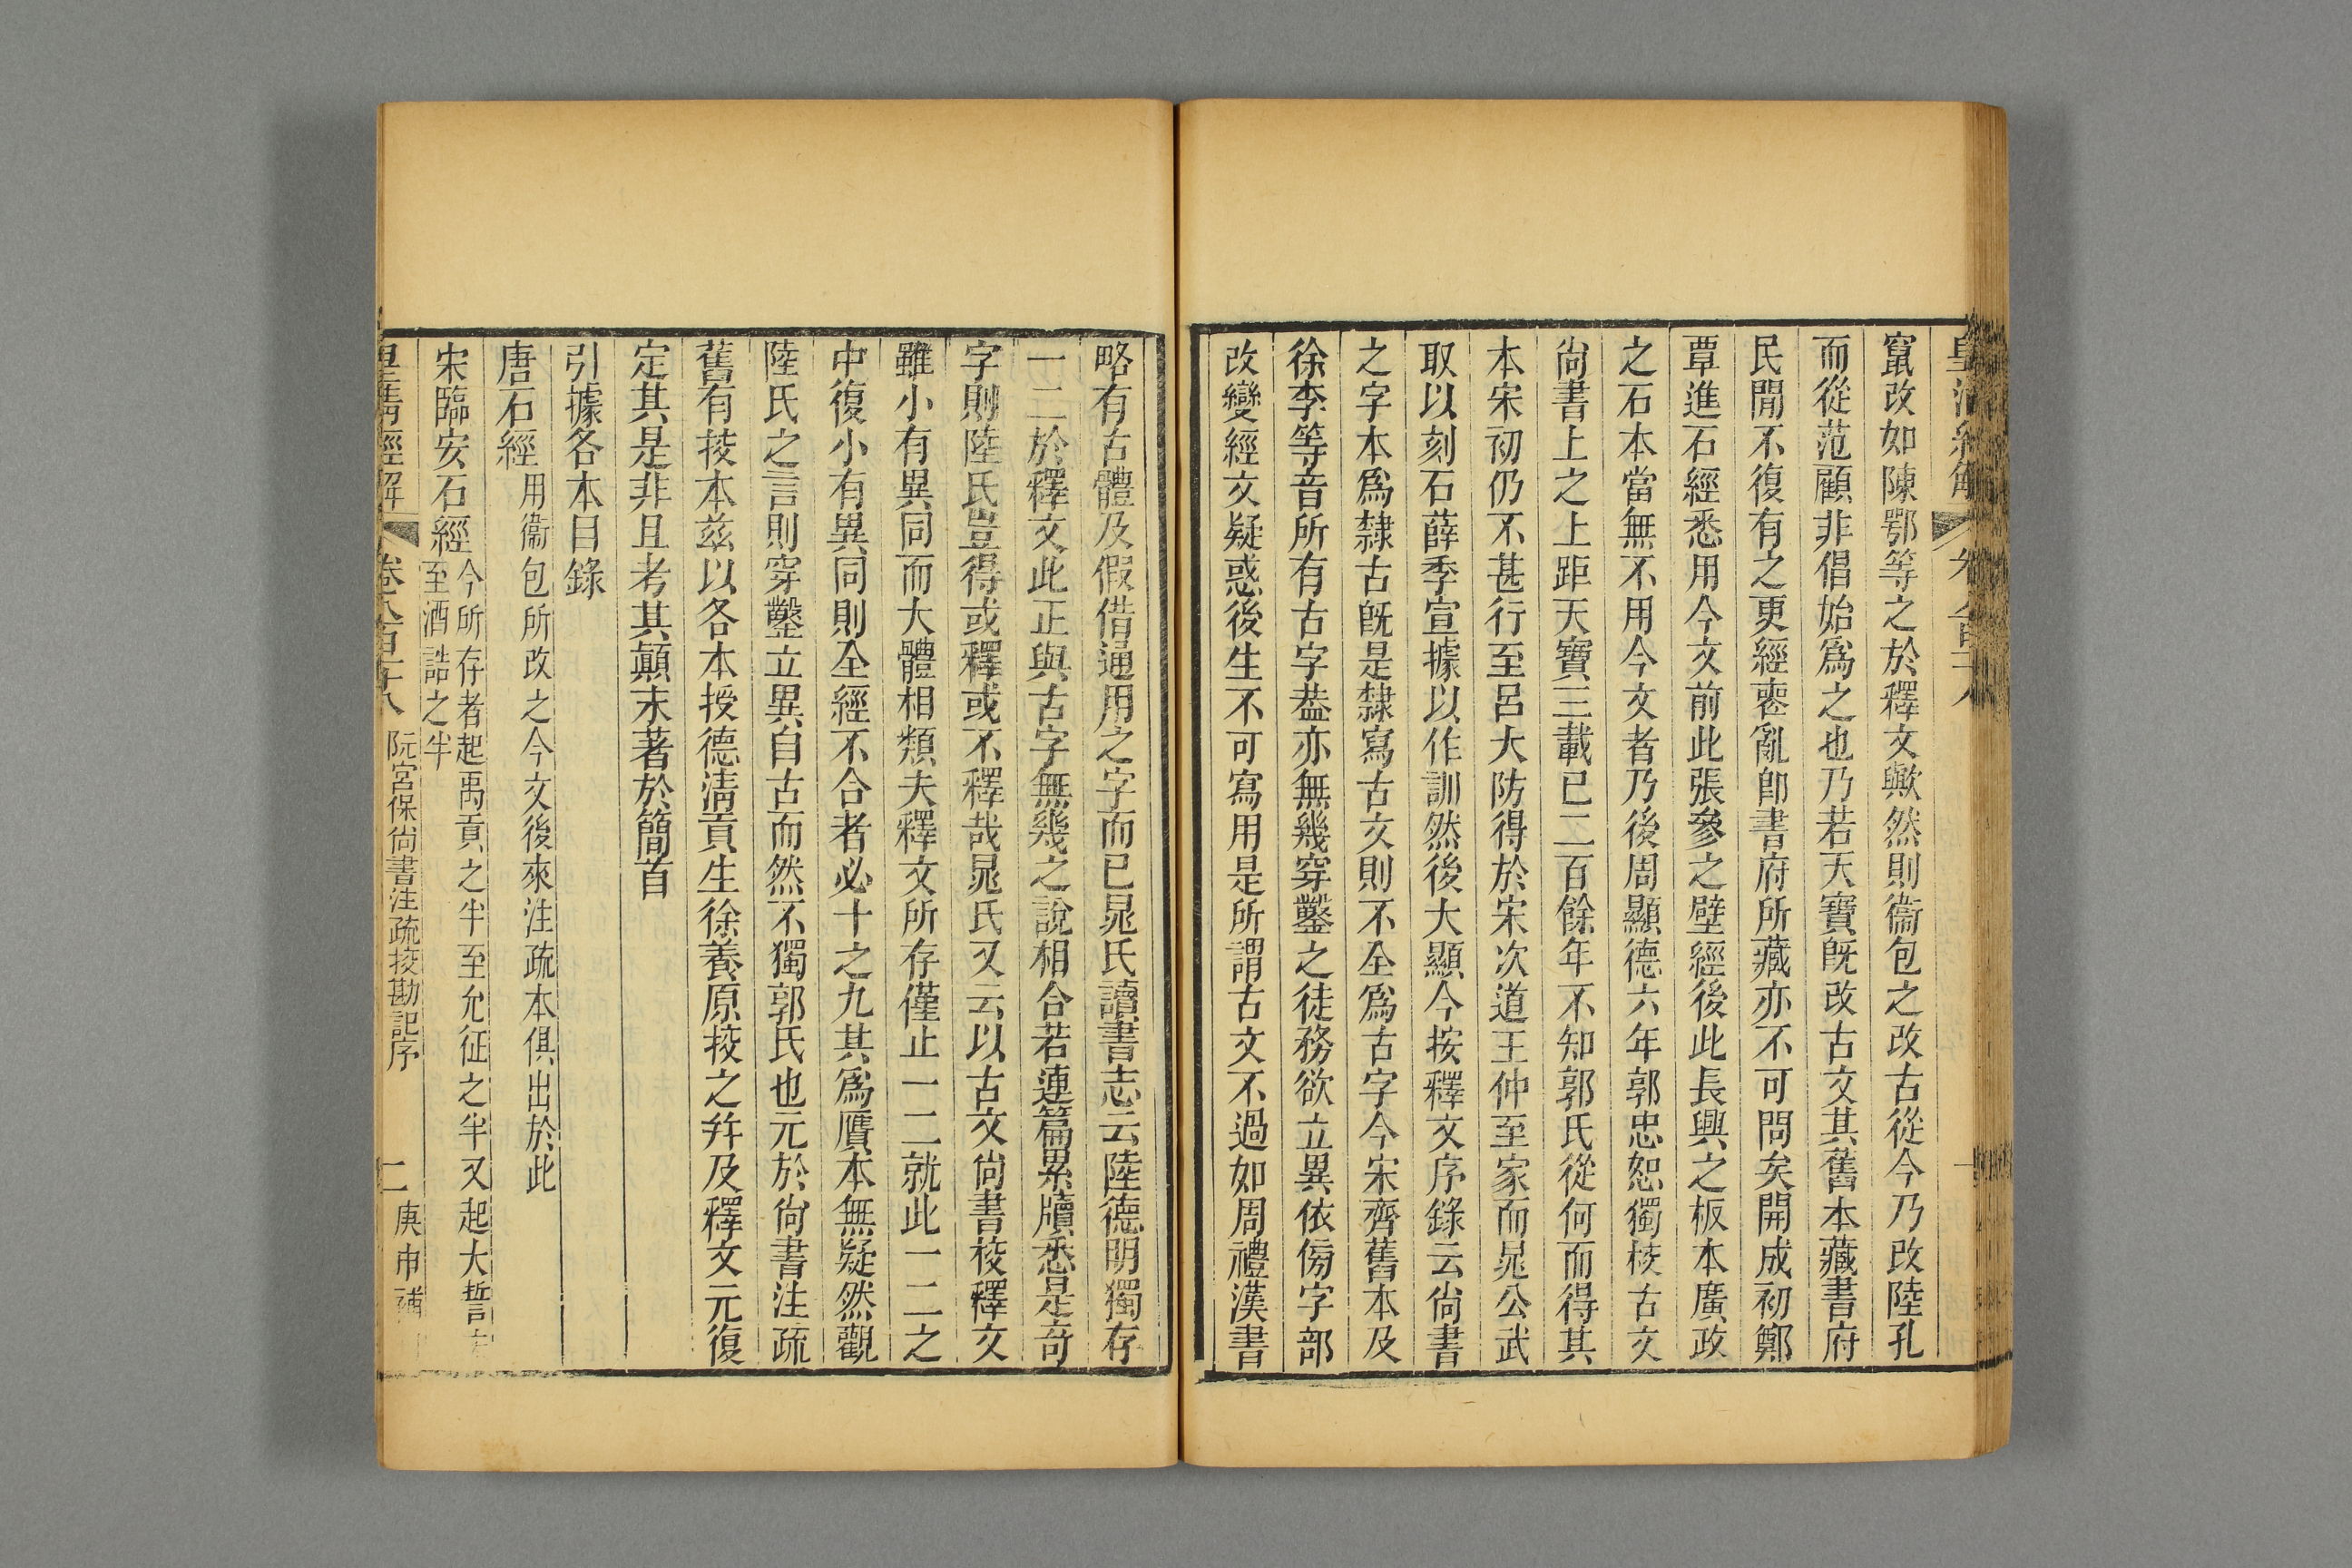 竄改如陳鄂等之於釋文歟然則衞包之改古從今乃改陸孔
而從范顧非倡始爲之也乃若天寶旣改古文其舊本藏書府
民閒不復有之更經喪亂卽書府所藏亦不可問矣開成初鄭
覃進石經悉用今文前此張參之壁經後此長興之板本廣政
之石本當無不用今文者乃後周顯德六年郭忠恕獨校古文
尙書上之上距天寶三載已二百餘年不知郭氏從何而得其
本宋初仍不甚行至呂大防得於宋次道王仲至家而晁公武
取以刻石薛季宣據以作訓然後大顯今按釋文序錄云尙書
之字本爲隸古旣是隸寫古文則不全爲古字今宋齊舊本及
徐李等音所有古字葢亦無幾穿鑿之徒務欲立異依傍字部
改變經文疑惑後生不可寫用是所謂古文不過如周禮漢書
略有古體及假借通用之字而已晁氏讀書志云陸德明獨存
一二於釋文此正與古字無幾之說相合若連篇累牘悉是奇
字則陸氏豈得或釋或不釋哉晁氏又云以古文尙書校釋文
雖小有異同而大體相類夫釋文所存僅止一二就此一二之
中復小有異同則全經不合者必十之九其爲贋本無疑然觀
陸氏之言則穿鑿立異自古而然不獨郭氏也元於尙書注疏
舊有挍本兹以各本授德淸貢生徐養原挍之幷及釋文元復
定其是非且考其顚末著於簡首
引據各本目錄
唐石經
用衞包所改之今文後來注疏本俱出於此
宋臨安石經
今所存者起禹貢之半至允征之半又起大誓
至酒誥之半
皇淸經解 卷八百十八 阮宮保尙書注疏挍勘記序 二 庚申補